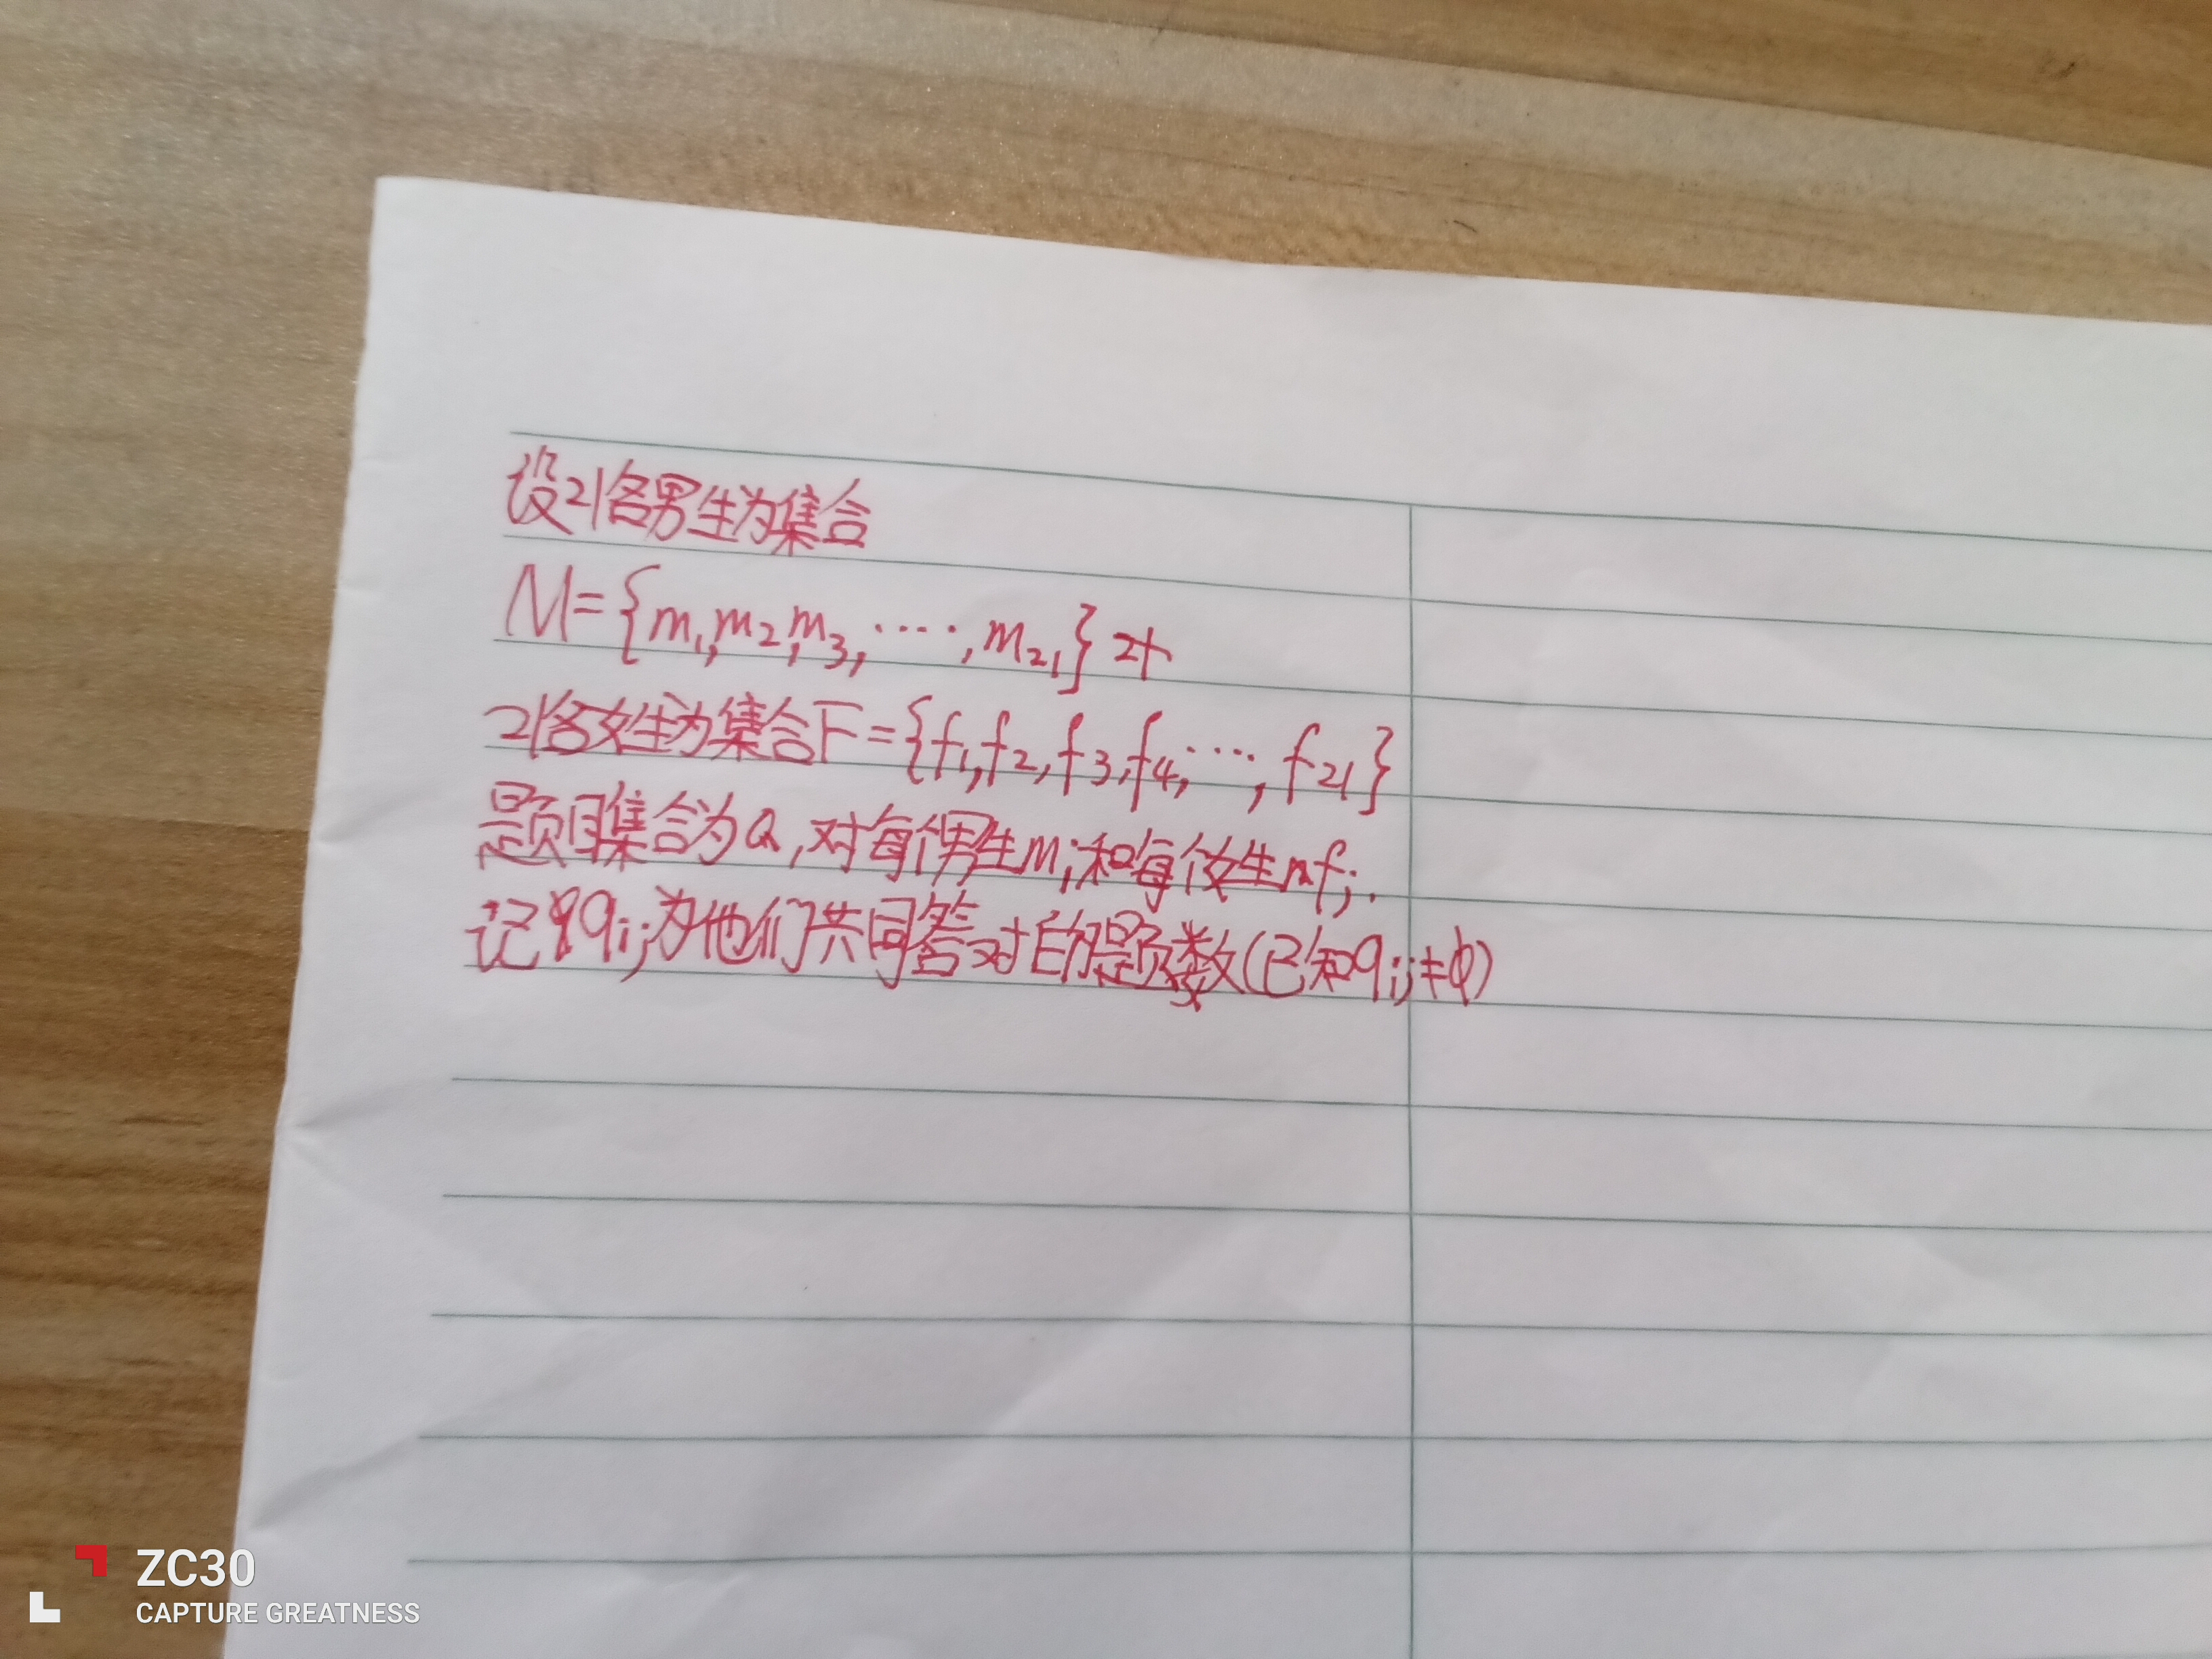 设21各男生为集合
M={m₁,m₂,m₃,....,m₂₁}
21各女生为集合F={f₁,f₂,f₃,f₄,...,f₂₁}
题目集合为Q,对每个男生mᵢ和每个女生fⱼ.
记qᵢⱼ为他们共同答对的题数(已知qᵢⱼ≠ϕ)
ZC30
CAPTURE GREATNESS